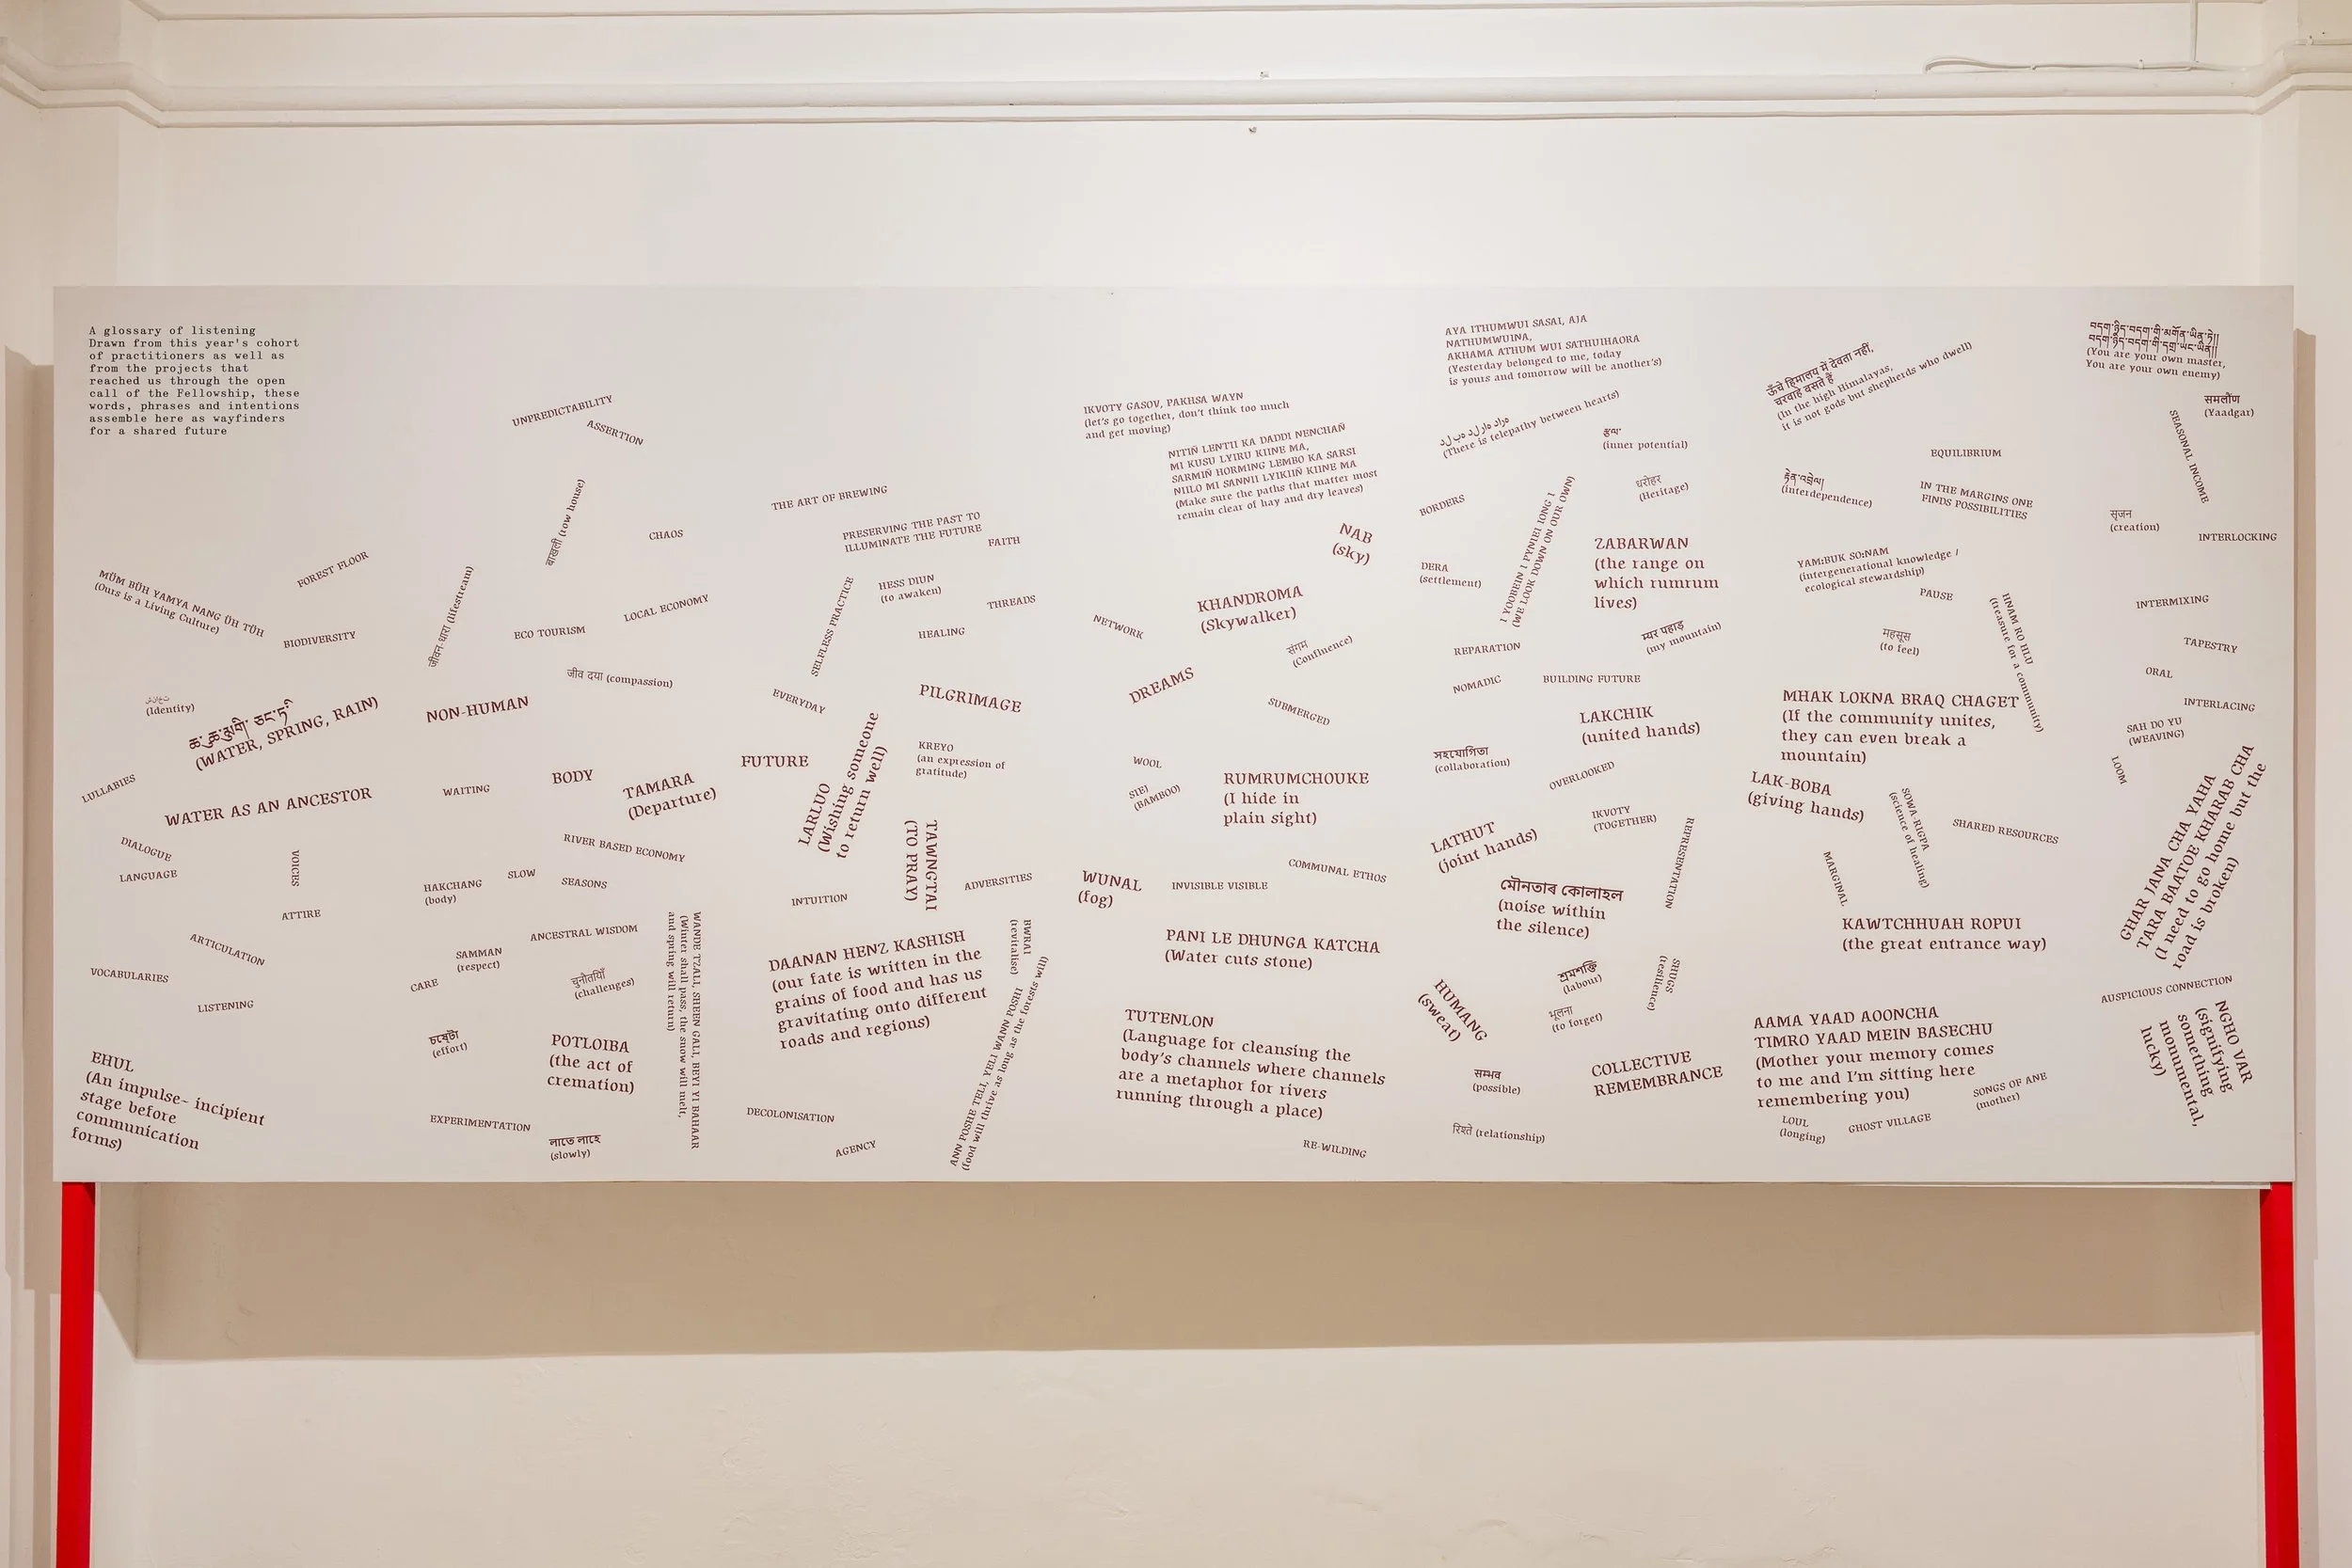 A glossary of listening
Drawn from this year's cohort
of practitioners as well as
from the projects that
reached us through the open
call of the Fellowship, these
words, phrases and intentions
assemble here as wayfinders
for a shared future
UNPREDICTABILITY
ASSERTION
बाखली (row house)
CHAOS
THE ART OF BREWING
PRESERVING THE PAST TO
ILLUMINATE THE FUTURE
FAITH
FOREST FLOOR
MÜM BÜH YAMYA NANG ÜH TÜH
(Ours is a Living Culture)
BIODIVERSITY
जीवन-धारा (lifestream)
ECO TOURISM
LOCAL ECONOMY
SELFLESS PRACTICE
HESS DIUN
(to awaken)
THREADS
HEALING
जीव दया (compassion)
(Identity)
ཆ་ཆུ་ཆུམིག་ཆང་ཏཱ་
(WATER, SPRING, RAIN)
NON-HUMAN
EVERYDAY
PILGRIMAGE
LULLABIES
WATER AS AN ANCESTOR
WAITING
BODY
TAMARA
(Departure)
FUTURE
LARLUO
(Wishing someone
to return well)
KREYO
(an expression of
gratitude)
DIALOGUE
LANGUAGE
VOICES
RIVER BASED ECONOMY
HAKCHANG
(body)
SLOW
SEASONS
TAWNGTAI
(TO PRAY)
INTUITION
ADVERSITIES
ATTIRE
ARTICULATION
VOCABULARIES
LISTENING
ANCESTRAL WISDOM
SAMMAN
(respect)
CARE
चुनौतियाँ
(challenges)
WANDE TZALI, SHEEN GALI, BEYI YI BAHAAR
(Winter shall pass, the snow will melt,
and spring will return)
DAANAN HENZ KASHISH
(our fate is written in the
grains of food and has us
gravitating onto different
roads and regions)
BWRAI
(revitalise)
ANN POSHE TELI, YELI WANN POSHI
(food will thrive as long as the forests will)
(effort)
POTLOIBA
(the act of
cremation)
EHUL
(An impulse- incipient
stage before
communication
forms)
EXPERIMENTATION
লাহে লাহে
(slowly)
DECOLONISATION
AGENCY
IKVOTY GASOV, PAKHSA WAYN
(let's go together, don't think too much
and get moving)
NITIÑ LENTII KA DADDI NENCHAÑ
MI KUSU LYIRU KIINE MA,
SARMIÑ HORMING LEMBO KA SARSI
NIILO MI SANNII LYIKIIÑ KIINE MA
(Make sure the paths that matter most
remain clear of hay and dry leaves)
NAB
(sky)
KHANDROMA
(Skywalker)
NETWORK
संगम
(Confluence)
DREAMS
SUBMERGED
WOOL
SIEJ
(BAMBOO)
RUMRUMCHOUKE
(I hide in
plain sight)
WUNAL
(fog)
INVISIBLE VISIBLE
COMMUNAL ETHOS
PANI LE DHUNGA KATCHA
(Water cuts stone)
TUTENLON
(Language for cleansing the
body's channels where channels
are a metaphor for rivers
running through a place)
RE-WILDING
AYA ITHUMWUI SASAI, AJA
NATHUMWUINA,
AKHAMA ATHUM WUI SATHUIHAORA
(Yesterday belonged to me, today
is yours and tomorrow will be another's)
(There is telepathy between hearts)
(inner potential)
BORDERS
धरोहर
(Heritage)
DERA
(settlement)
I YOOBEIN I PYNIEI IONG I
(WE LOOK DOWN ON OUR OWN)
ZABARWAN
(the range on
which rumrum
lives)
REPARATION
म्यर पहाड़
(my mountain)
NOMADIC
BUILDING FUTURE
LAKCHIK
(united hands)
সহযোগিতা
(collaboration)
OVERLOOKED
IKVOTY
(TOGETHER)
LATHUT
(joint hands)
REPRESENTATION
মৌনতাৰ কোলাহল
(noise within
the silence)
শ্রমশক্তি
(labour)
SHUGS
(resilience)
HUMANG
(sweat)
भूलना
(to forget)
सम्भव
(possible)
COLLECTIVE
REMEMBRANCE
रिश्ते (relationship)
ऊँचे हिमालय में देवता नहीं,
चरवाहे बसते हैं
(In the high Himalayas,
it is not gods but shepherds who dwell)
བདག་ཉིད་བདག་གི་མགོན་ཡིན་ཏེ།།
བདག་ཉིད་བདག་གི་དགྲ་ཡང་ཡིན།།
(You are your own master,
You are your own enemy)
समलौंण
(Yaadgar)
SEASONAL INCOME
EQUILIBRIUM
རྟེན་འབྲེལ།
(interdependence)
IN THE MARGINS ONE
FINDS POSSIBILITIES
सृजन
(creation)
INTERLOCKING
YAM:BUK SO:NAM
(intergenerational knowledge /
ecological stewardship)
PAUSE
HNAM RO HLU
(treasure for a community)
INTERMIXING
महसूस
(to feel)
TAPESTRY
ORAL
MHAK LOKNA BRAQ CHAGET
(If the community unites,
they can even break a
mountain)
INTERLACING
SAH DO YU
(WEAVING)
LOOM
LAK-BOBA
(giving hands)
SOWA-RIGPA
(science of healing)
SHARED RESOURCES
MARGINAL
GHAR JANA CHA YAHA
TARA BAATOE KHARAB CHA
(I need to go home but the
road is broken)
KAWTCHHUAH ROPUI
(the great entrance way)
AUSPICIOUS CONNECTION
NGHO VAR
(signifying
something
monumental,
lucky)
AAMA YAAD AOONCHA
TIMRO YAAD MEIN BASECHU
(Mother your memory comes
to me and I'm sitting here
remembering you)
SONGS OF ANE
(mother)
LOUL
(longing)
GHOST VILLAGE